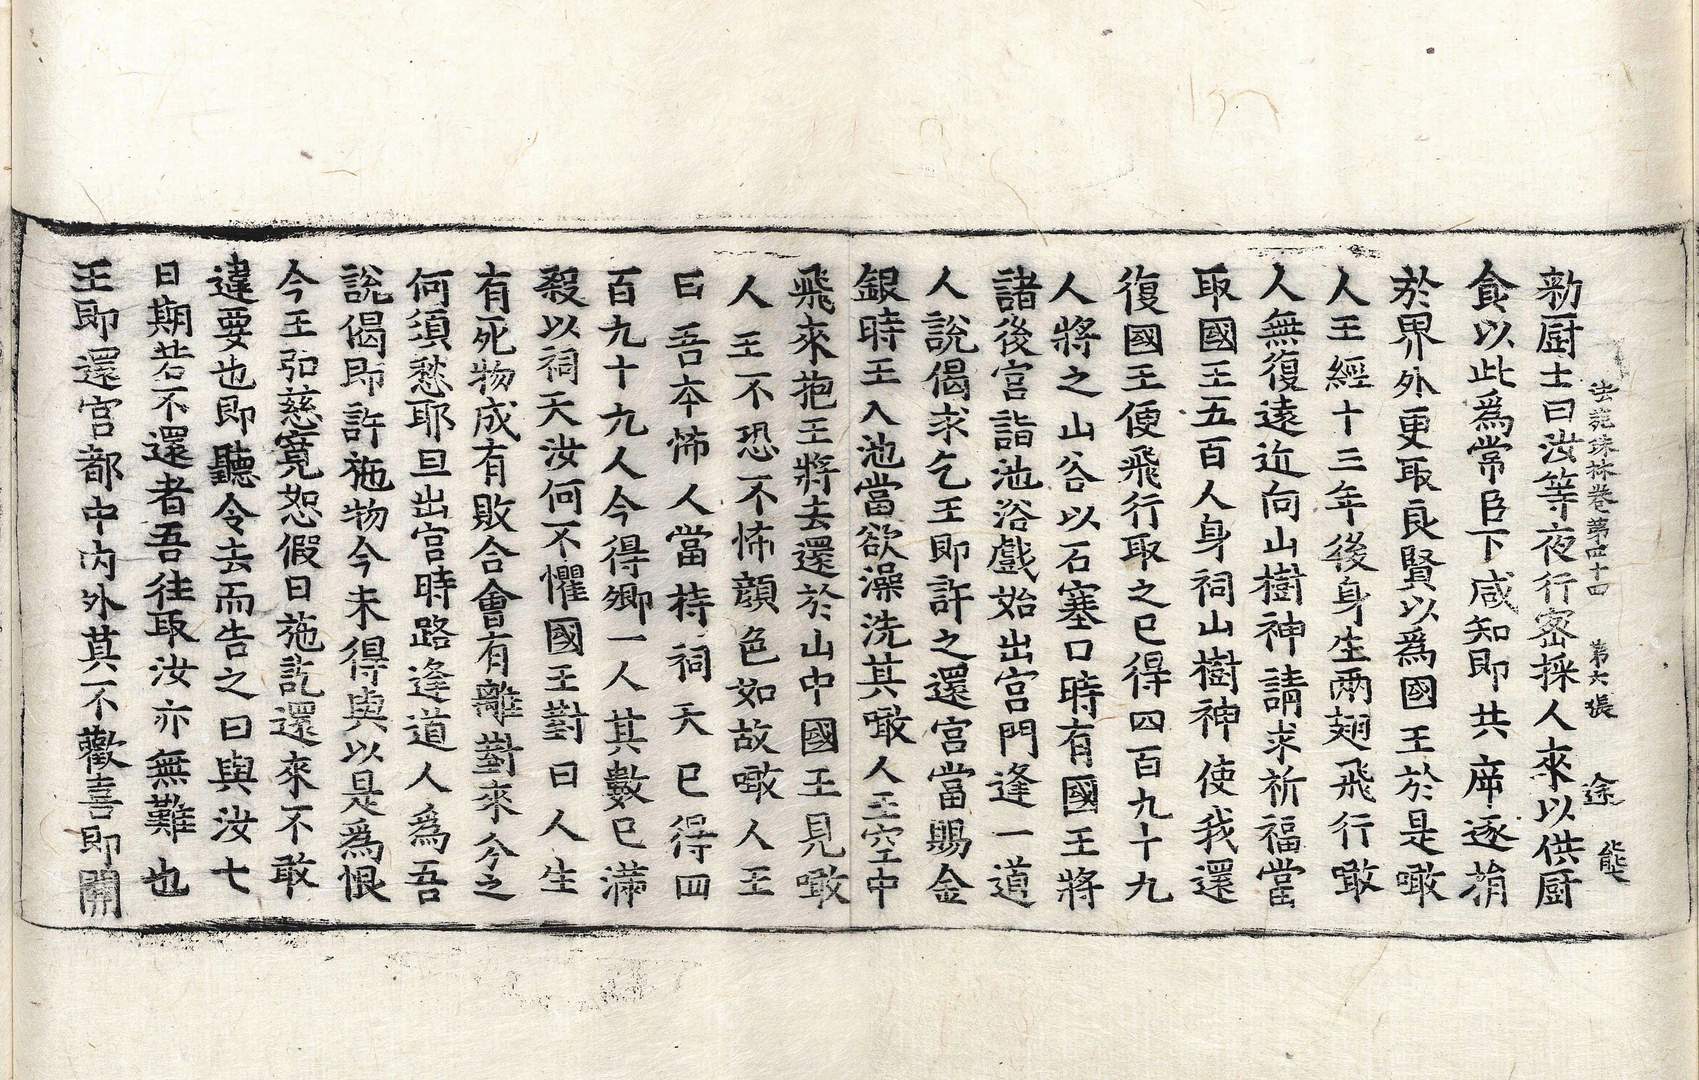 法苑珠林卷第四十四 第六張 途 能
勑厨士曰汝等夜行密採人來以供厨
食以此爲常臣下咸知即共席逐捐
於界外更取良賢以爲國王於是噉
人王經十三年後身生兩翅飛行噉
人無復遠近向山樹神請求祈福當
取國王五百人身祠山樹神使我還
復國王便飛行取之已得四百九十九
人將之山谷以石塞口時有國王將
諸後宮詣池浴戲始出宮門逢一道
人說偈求乞王即許之還宮當賜金
銀時王入池當欲澡洗其噉人王空中
飛來抱王將去還於山中國王見噉
人王不恐不怖顔色如故噉人王
曰吾本怖人當持祠天已得四
百九十九人今得卿一人其數已滿
殺以祠天汝何不懼國王對曰人生
有死物成有敗合會有離對來今之
何須愁耶旦出宮時路逢道人爲吾
說偈即許施物今未得與以是爲恨
今王弘慈寬恕假日施訖還來不敢
違要也即聽令去而告之曰與汝七
日期若不還者吾往取汝亦無難也
王即還宮都中內外莫不歡喜即開